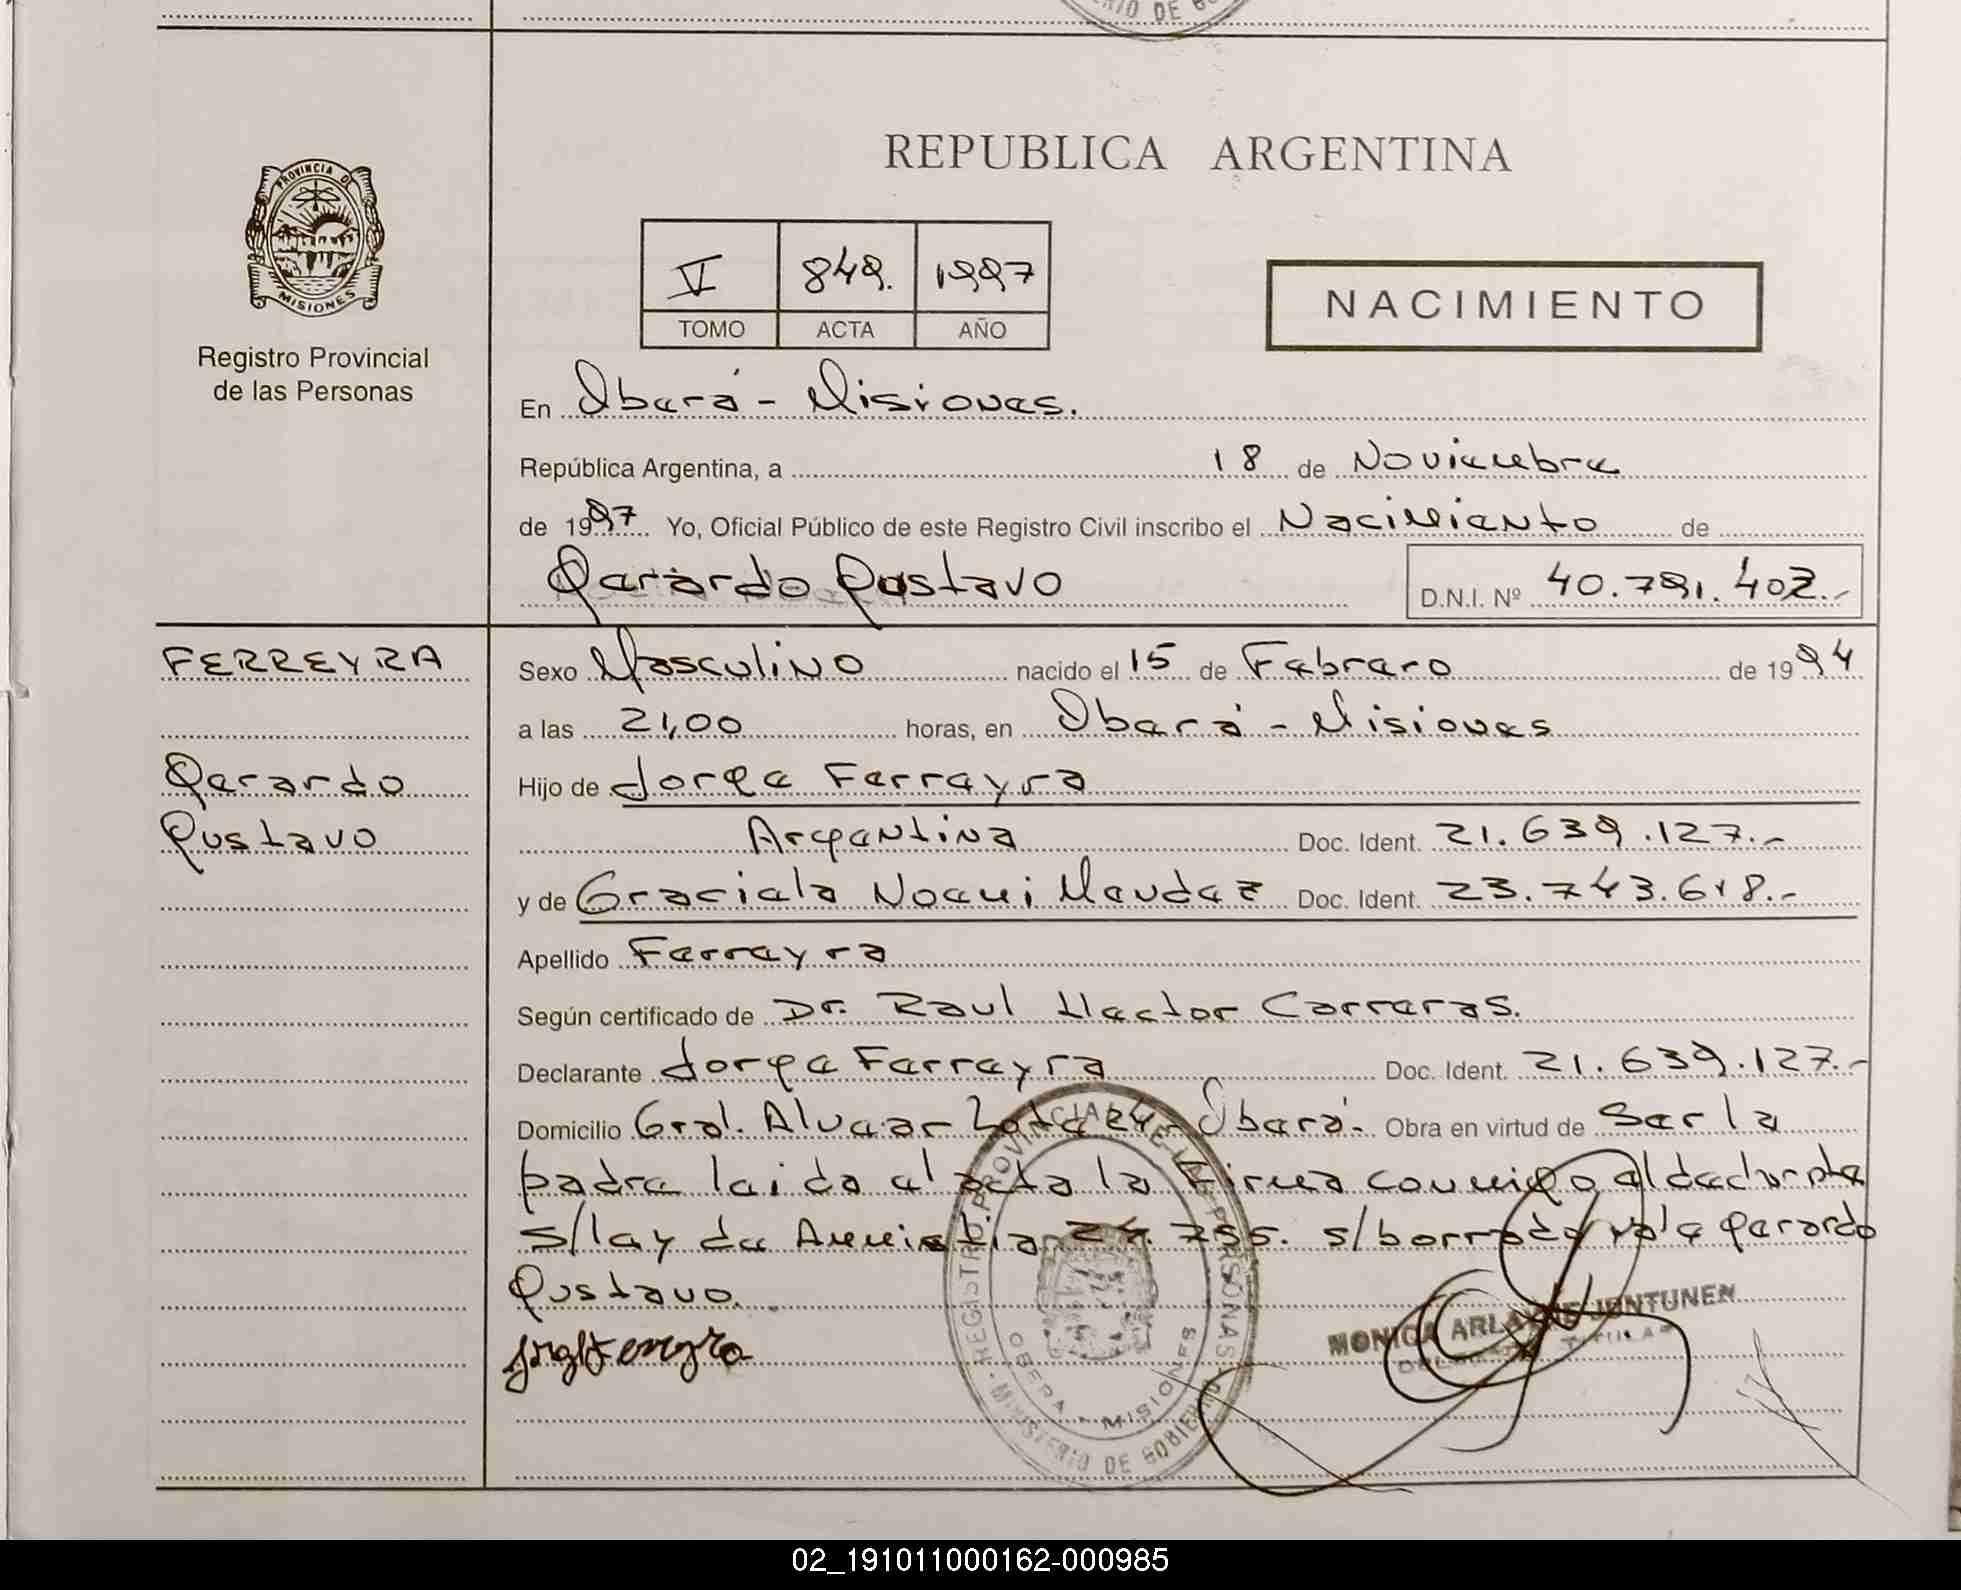 RIO DE GO
PROVINCIA DE
MISIONES
Registro Provincial
de las Personas
REPUBLICA ARGENTINA
V 849. 1997
TOMO ACTA AÑO
NACIMIENTO
En Oberá - Misiones.
República Argentina, a 18 de Noviembre
de 1997 Yo, Oficial Público de este Registro Civil inscribo el Nacimiento de
Gerardo Gustavo D.N.I. Nº 40.791.402.-
FERREYRA
Gerardo
Gustavo
Sexo Masculino nacido el 15 de Febrero de 1994
a las 21,00 horas, en Oberá - Misiones
Hijo de Jorge Ferreyra
Argentina Doc. Ident. 21.639.127.-
y de Graciela Noemi Mendez Doc. Ident. 23.743.618.-
Apellido Ferreyra
Según certificado de Dr. Raul Hector Carreras.
Declarante Jorge Ferreyra Doc. Ident. 21.639.127.-
Domicilio Gral. Alvear Lote 24 - Oberá - Obra en virtud de Ser la
padre leida el acta la firma conmigo el declarante
s/ley de Amnistia 24.755. s/borrado vale Gerardo
Gustavo.
Jorge Ferreyra
MONICA ARLAYNE JONTUNEN
TITULAR
REGISTRO PROVINCIAL DE LAS PERSONAS
OBERA - MISIONES
MINISTERIO DE GOBIERNO
02_191011000162-000985